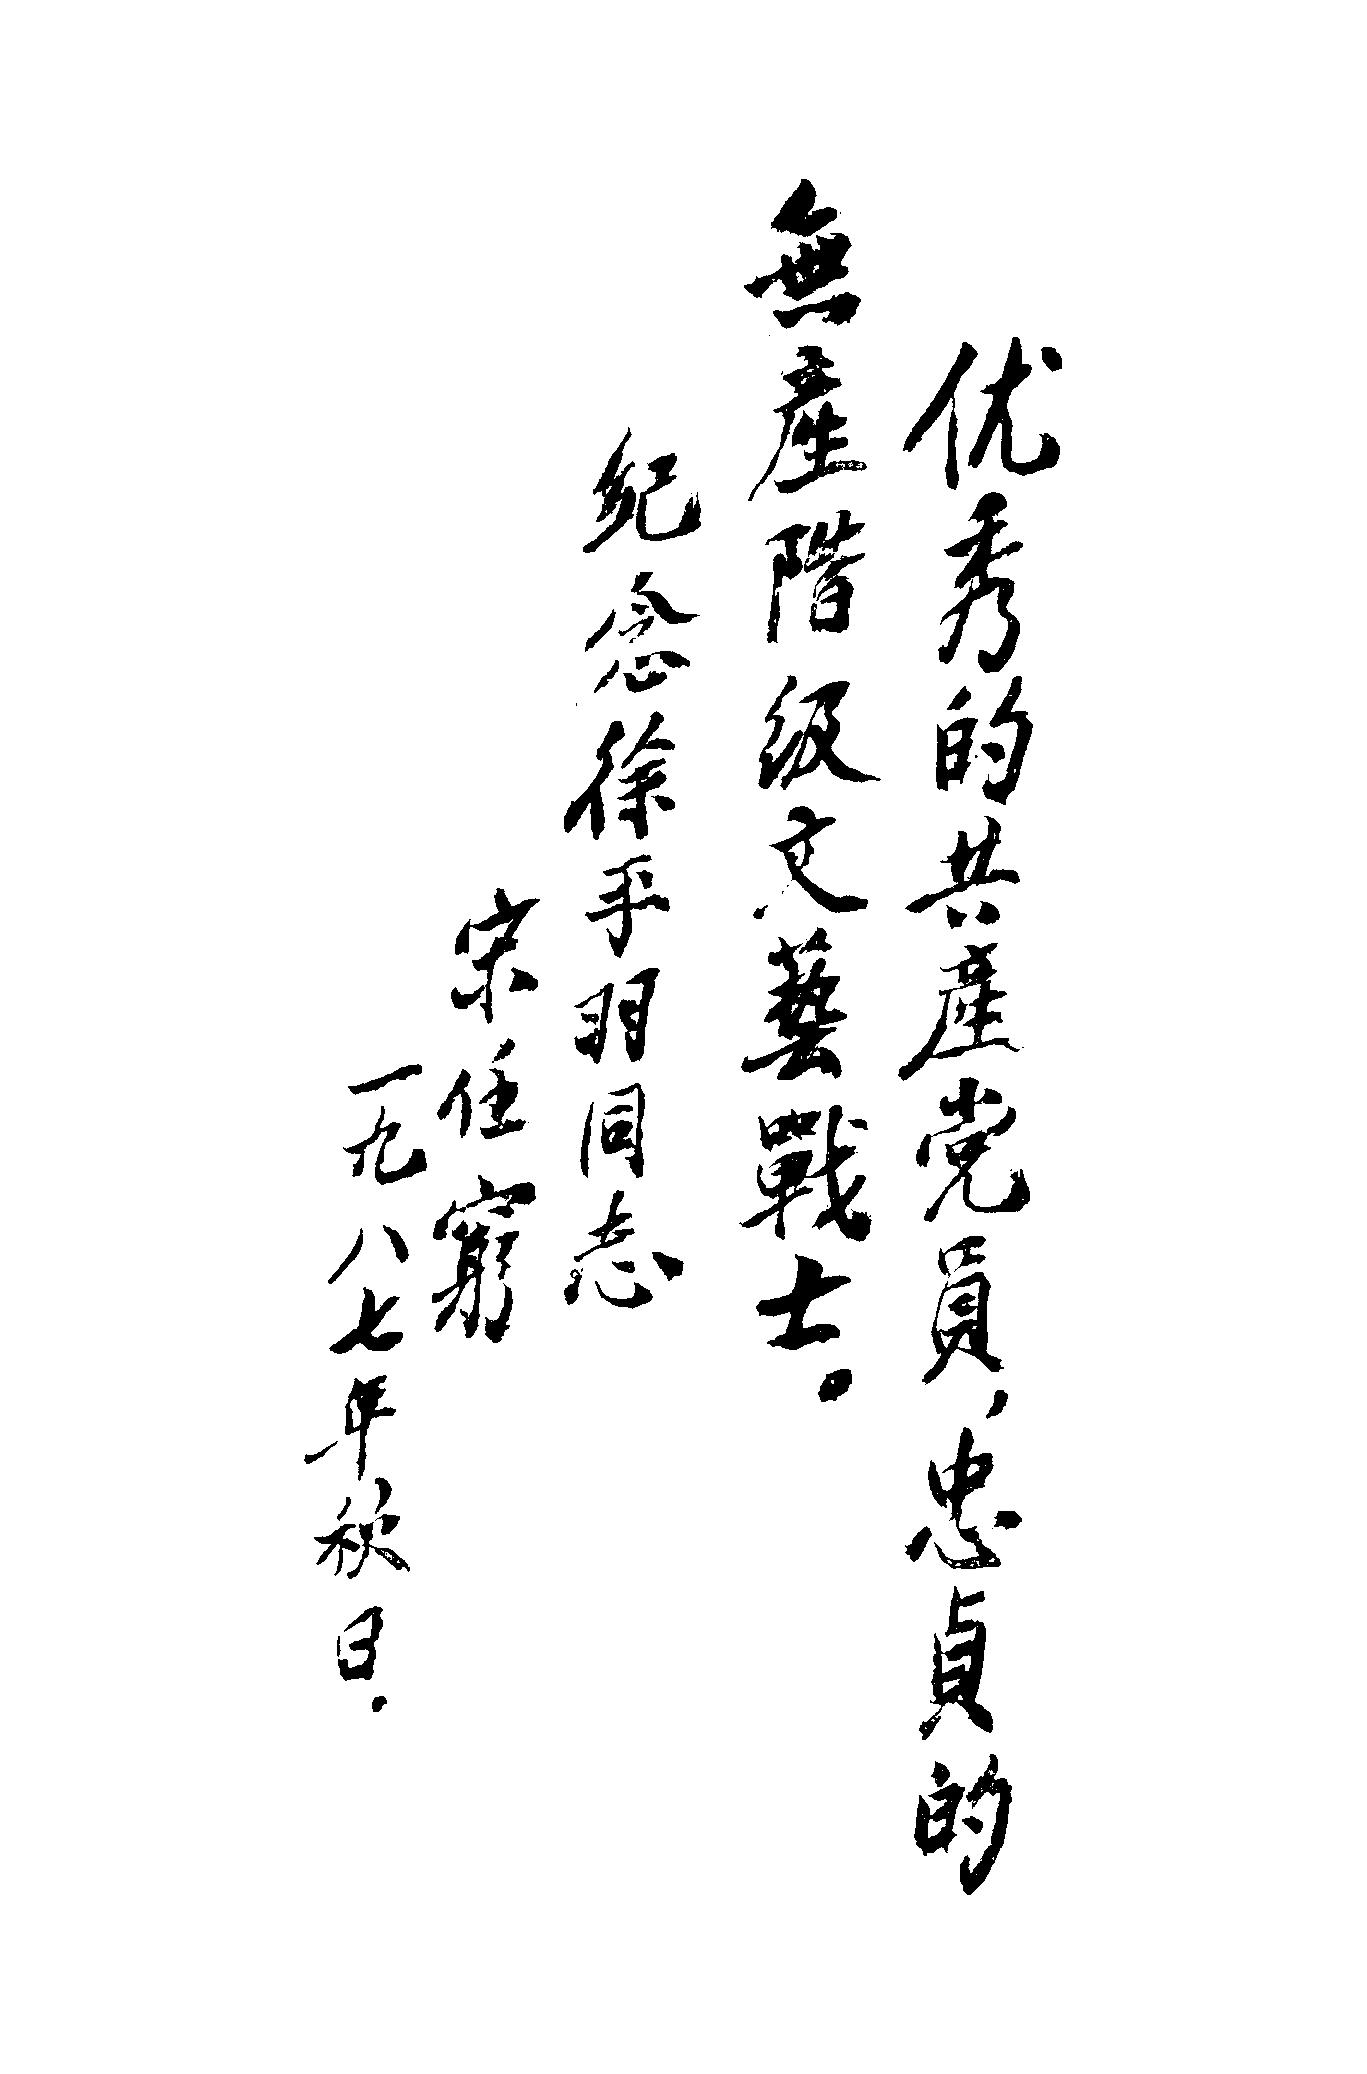 优秀的共產党員，忠貞的
無產階级文藝戰士。
紀念徐平羽同志
宋任窮
一九八七年秋日.